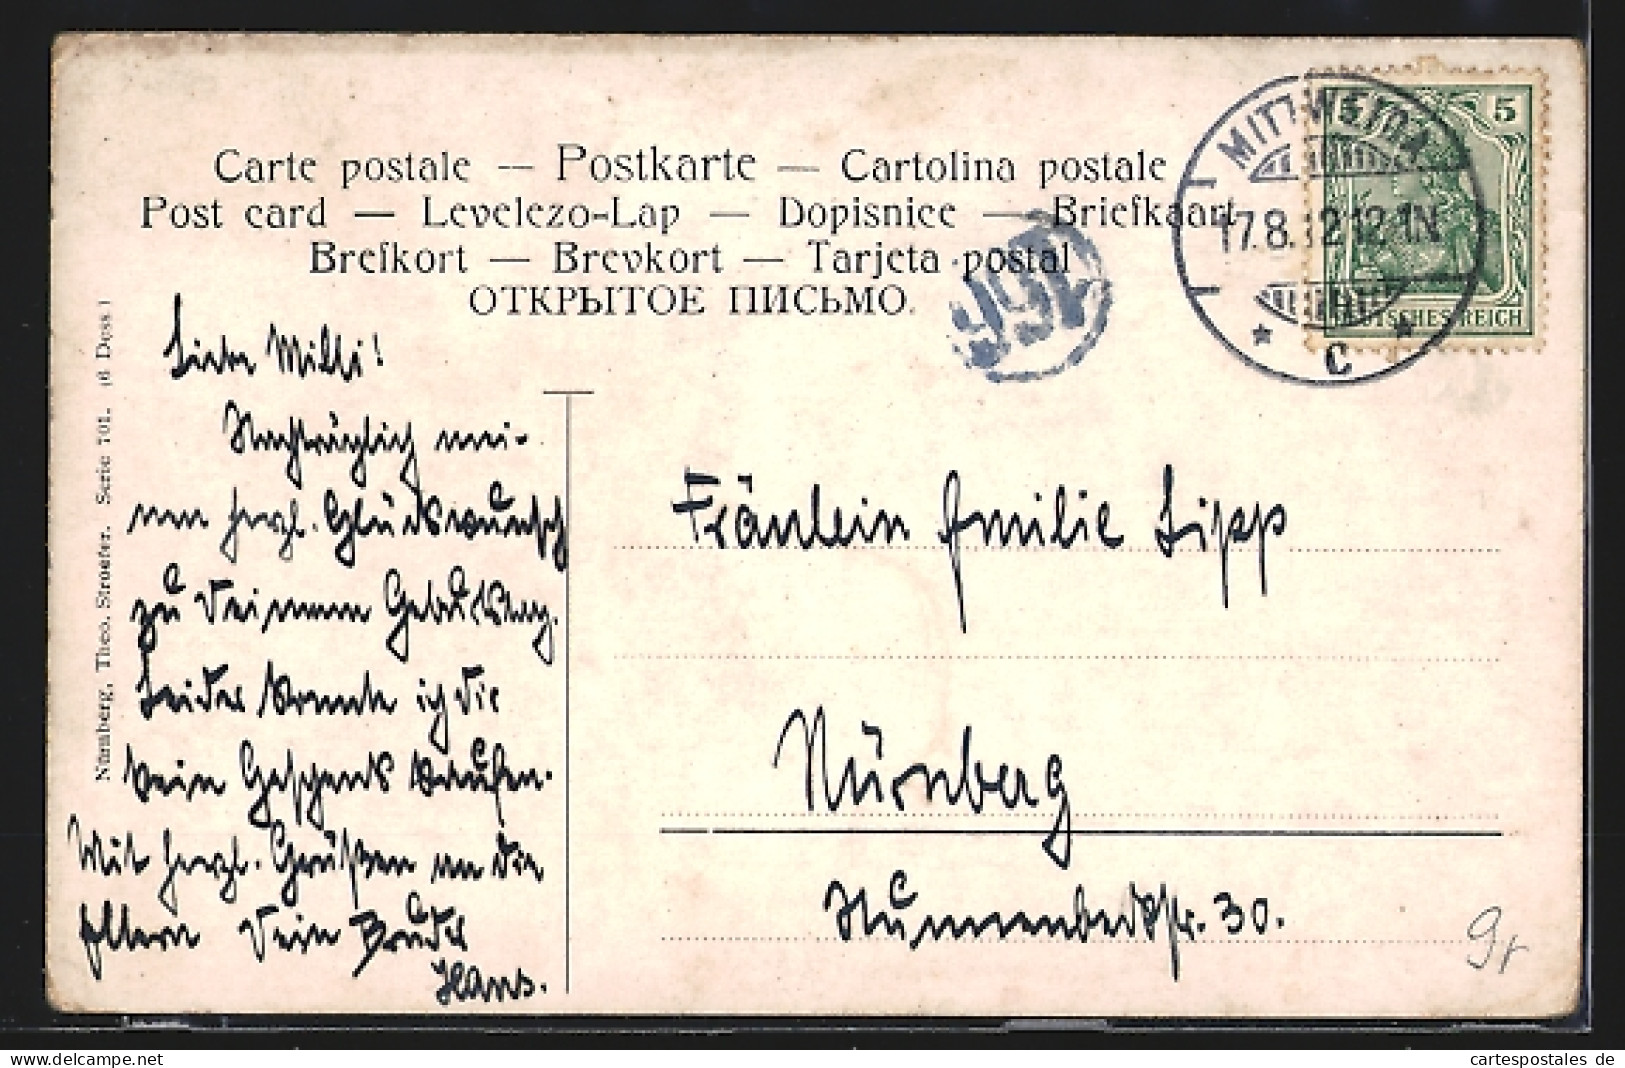 Carte postale — Postkarte — Cartolina postale
Post card — Levelezo-Lap — Dopisnice — Briefkaart
Brefkort — Brevkort — Tarjeta postal
ОТКРЫТОЕ ПИСЬМО.
MITTWEIDA
17.8.12.12-1N
* C *
5 5
DEUTSCHES REICH
166
Nürnberg, Theo. Stroefer. Serie 701. (6 Dess.)
Liebe Milli!
Nachträglich mei-
nen herzl. Glückswunsch
zu Deinem Geburtstag.
Leider konnte ich Dir
kein Geschenk kaufen.
Mit herzl. Grüßen an die
Eltern Dein Bruder
Hans.
Fräulein Emilie Lipp
Nürnberg
30.
cartespostales de